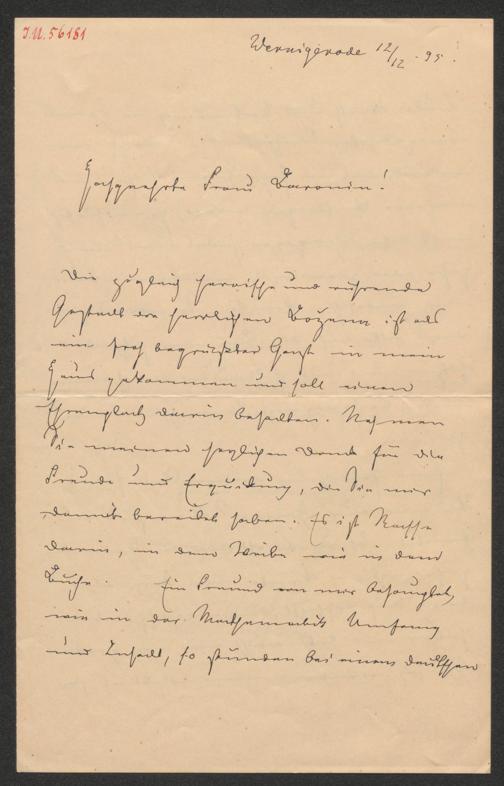 I.N. 56181
Wernigerode 12/12. 95.
Hochgeehrte Frau Baronin!
Die zugleich heroische und rührende
Gestalt der herrlichen Bozena ist als
ein froh begrüßter Gast in mein
Haus gekommen und soll einen
Ehrenplatz darin behalten. Nehmen
Sie meinen herzlichen Dank für die
Freude und Erquickung, die Sie mir
damit bereitet haben. Es ist Rasse
darin, in dem Weibe wie in dem
Buche. Ein Freund von mir behauptet,
wie in der Mathematik Umfang
und Inhalt, so stünden bei einem deutschen